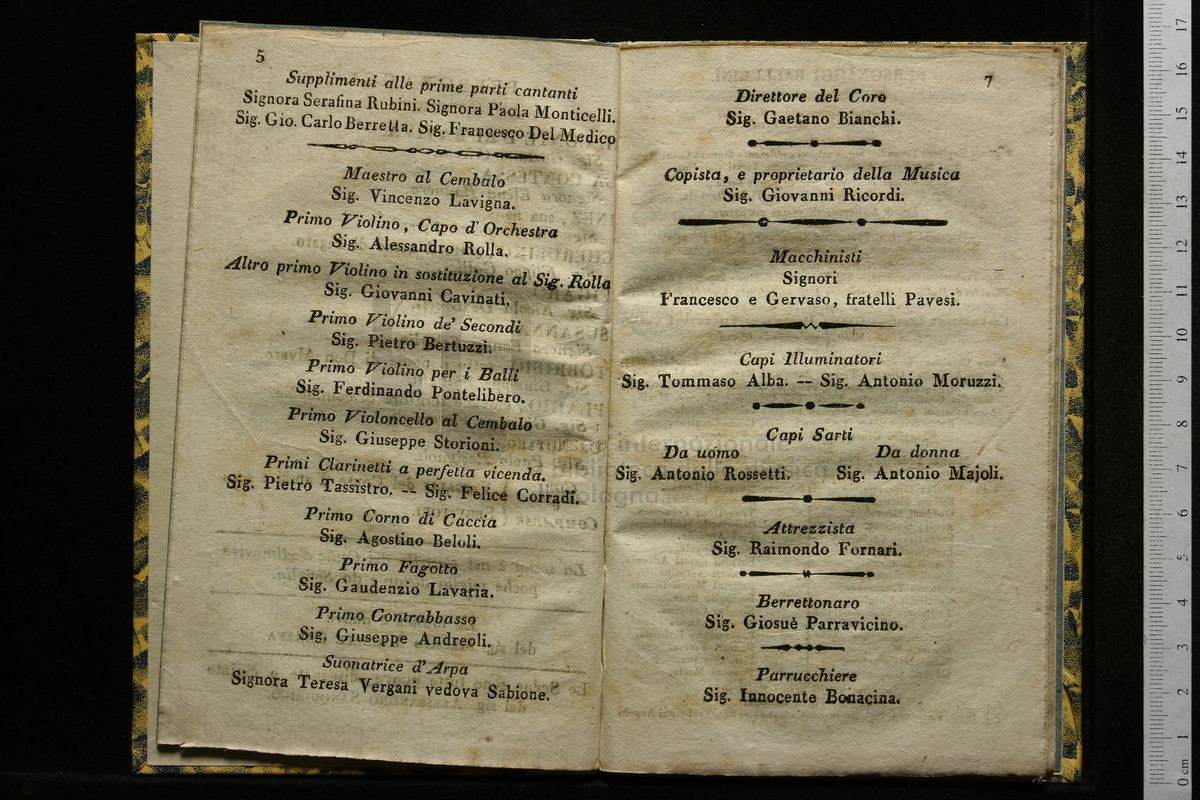 5
Supplimenti alle prime parti cantanti
Signora Serafina Rubini. Signora Paola Monticelli.
Sig. Gio. Carlo Berretta. Sig. Francesco Del Medico
Maestro al Cembalo
Sig. Vincenzo Lavigna.
Primo Violino, Capo d'Orchestra
Sig. Alessandro Rolla.
Altro primo Violino in sostituzione al Sig. Rolla
Sig. Giovanni Cavinati.
Primo Violino de' Secondi
Sig. Pietro Bertuzzi.
Primo Violino per i Balli
Sig. Ferdinando Pontelibero.
Primo Violoncello al Cembalo
Sig. Giuseppe Storioni.
Primi Clarinetti a perfetta vicenda.
Sig. Pietro Tassistro. -- Sig. Felice Corradi.
Primo Corno di Caccia
Sig. Agostino Beloli.
Primo Fagotto
Sig. Gaudenzio Lavaria.
Primo Contrabbasso
Sig. Giuseppe Andreoli.
Suonatrice d'Arpa
Signora Teresa Vergani vedova Sabione.
7
Direttore del Coro
Sig. Gaetano Bianchi.
Copista, e proprietario della Musica
Sig. Giovanni Ricordi.
Macchinisti
Signori
Francesco e Gervaso, fratelli Pavesi.
Capi Illuminatori
Sig. Tommaso Alba. -- Sig. Antonio Moruzzi.
Capi Sarti
Da uomo Da donna
Sig. Antonio Rossetti. Sig. Antonio Majoli.
Attrezzista
Sig. Raimondo Fornari.
Berrettonaro
Sig. Giosuè Parravicino.
Parrucchiere
Sig. Innocente Bonacina.
0 cm 1 2 3 4 5 6 7 8 9 10 11 12 13 14 15 16 17